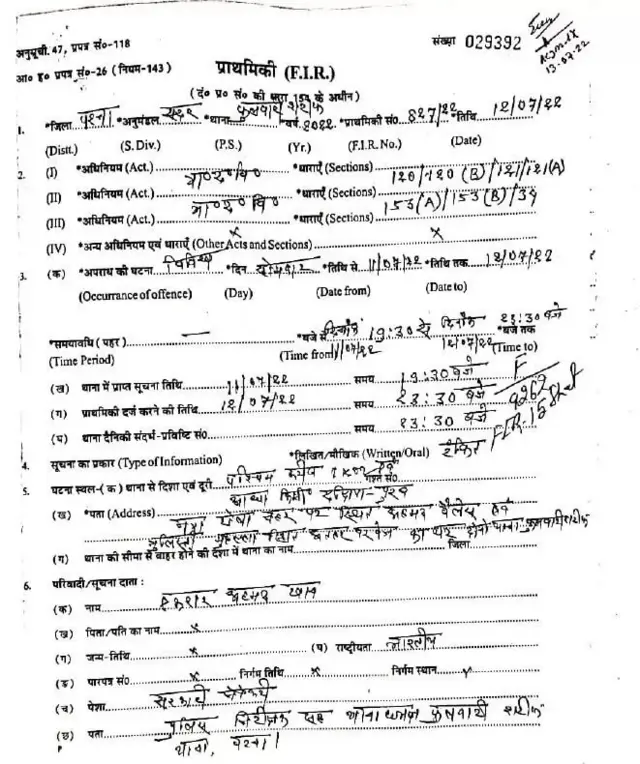 अनुसूची. 47, प्रपत्र सं०-118
संख्या 029392
आ० ह० प्रपत्र सं०-26 (नियम-143)
13-07-22
प्राथमिकी (F.I.R.)
(दं० प्र० सं० की धारा 154 के अधीन)
1. *जिला पटना *अनुमंडल सदर *थाना फुलवारी शरीफ *वर्ष 2022 *प्राथमिकी सं० 827/22 *तिथि 12/07/22
(Distt.) (S. Div.) (P.S.) (Yr.) (F.I.R. No.) (Date)
2. (I) *अधिनियम (Act.) भा० द० वि० *धाराएँ (Sections) 120/120(B)/121/121(A)
(II) *अधिनियम (Act.) भा० द० वि० *धाराएँ (Sections) 153(A)/153(B)/34
(III) *अधिनियम (Act.) x *धाराएँ (Sections)
(IV) *अन्य अधिनियम एवं धाराएँ (Other Acts and Sections) x
3. (क) *अपराध की घटना *दिन सोमवार *तिथि से 11/07/22 *तिथि तक 12/07/22
(Occurrance of offence) (Day) (Date from) (Date to)
*समयावधि (पहर) — *बजे से दिनांक 19:30 से दिनांक 23:30 बजे *बजे तक
(Time Period) (Time from) 11/07/22 12/07/22 (Time to)
(ख) थाना में प्राप्त सूचना तिथि 11/07/22 समय 19:30 बजे
(ग) प्राथमिकी दर्ज करने की तिथि 12/07/22 समय 23:30 बजे
(घ) थाना दैनिकी संदर्भ-प्रविष्टि सं० समय 23:30 बजे
4. सूचना का प्रकार (Type of Information) *लिखित/मौखिक (Written/Oral) टंकित
5. घटना स्थल-(क) थाना से दिशा एवं दूरी पश्चिम करीब
(ख) *पता (Address) नया टोला नहर पर स्थित अहमद पैलेस एवं
(ग) थाना की सीमा से बाहर होने की दशा में थाना का नाम जिला
6. परिवादी/सूचना दाता :
(क) नाम एकरार अहमद खान
(ख) पिता/पति का नाम x
(ग) जन्म-तिथि x (घ) राष्ट्रीयता भारतीय
(ङ) पारपत्र सं० x निर्गम तिथि x निर्गम स्थान x
(च) पेशा सरकारी सेवक
(छ) पता पुलिस निरीक्षक सह थानाध्यक्ष फुलवारी शरीफ
थाना, पटना।